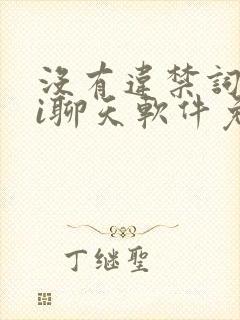 沒有違禁詞
i聊天軟件免
丁继聖